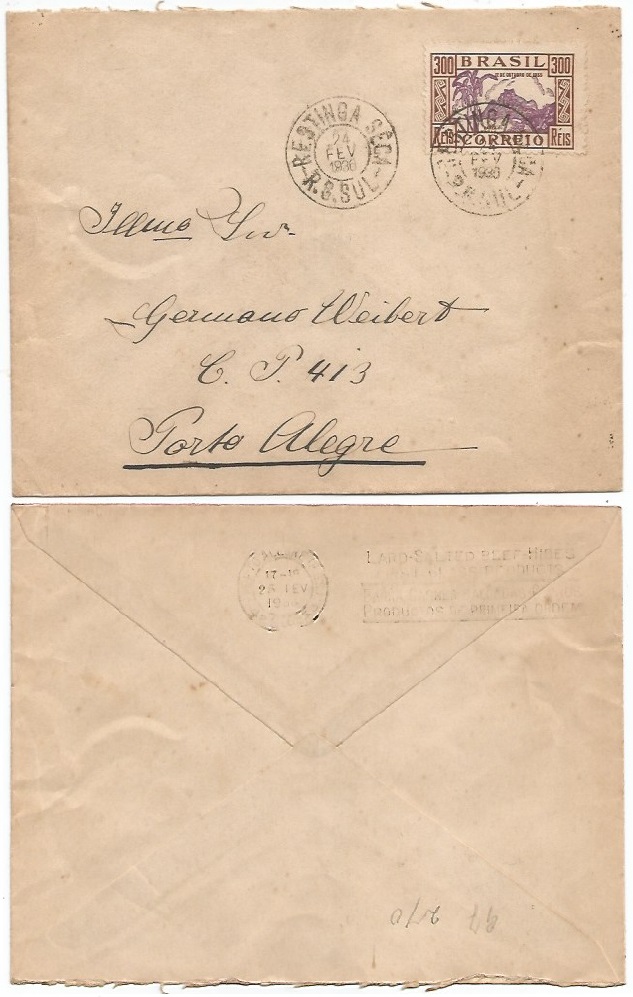 300 BRASIL 300
12 DE OUTUBRO DE 1935
RÉIS CORREIO RÉIS
RESTINGA SECA
24
FEV
1936
R.G.SUL
RESTINGA
FEV
1936
Illmo Snr.
Germano Weibert
C. P. 413
Porto Alegre
17-18
FEV
LARD-SALTED BEEF-HIDES
PRODUCTOS DE PRIMEIRA ORDEM